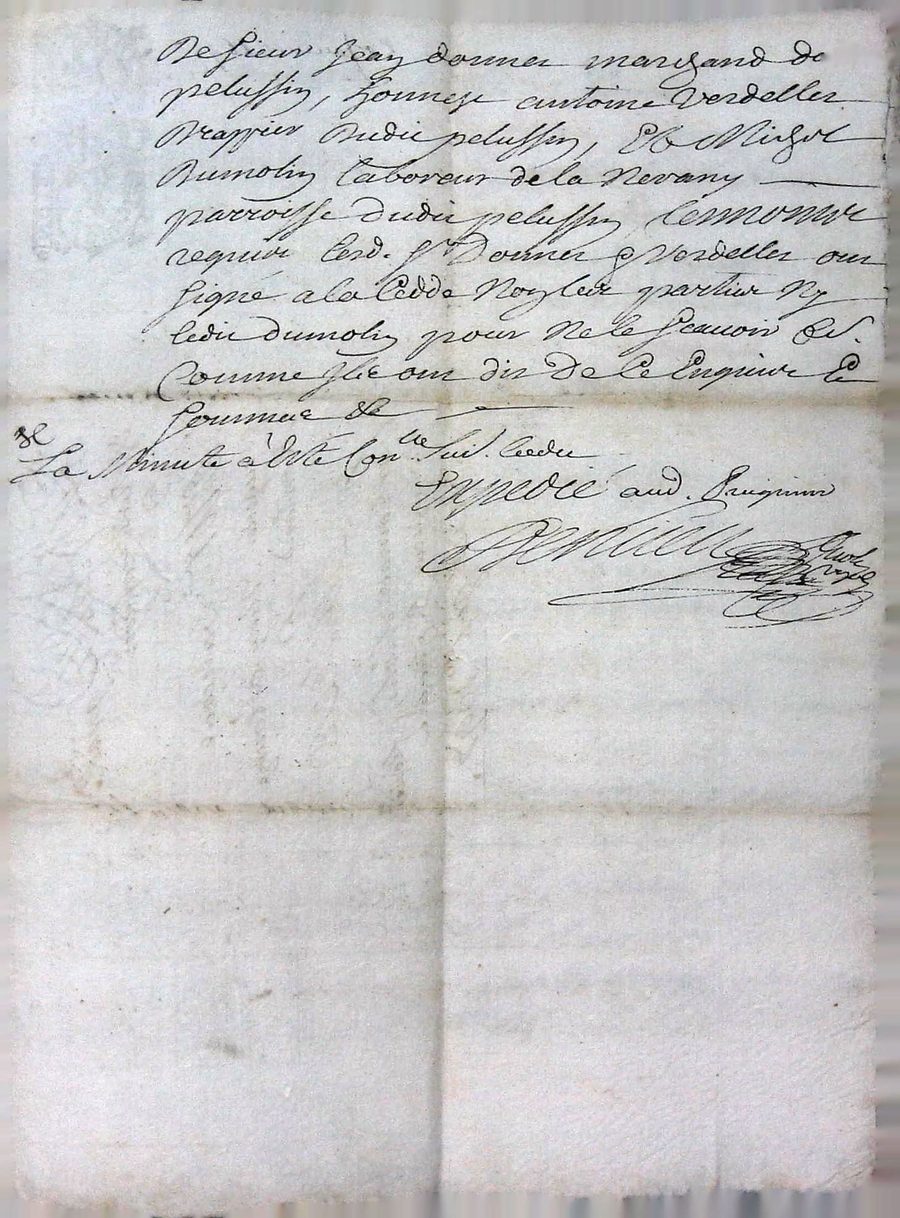 De sieur Jean Donnet marchand de
pelussin, honneste antoine Verdellet
Drappier dudit pelussin, Et Michel
Dumolin laboreur de la Nevany
parroisse dudit pelussin, tesmoings
requis lesd. Sr Donnet & Verdellet ont
signé a la cedde Non lesd parties Ny
ledit dumolin pour ne le scavoir
Comme Ilz ont dit De Ce Enquis Et
sommé &c
La Minute à été Conlle
Expedié aud.